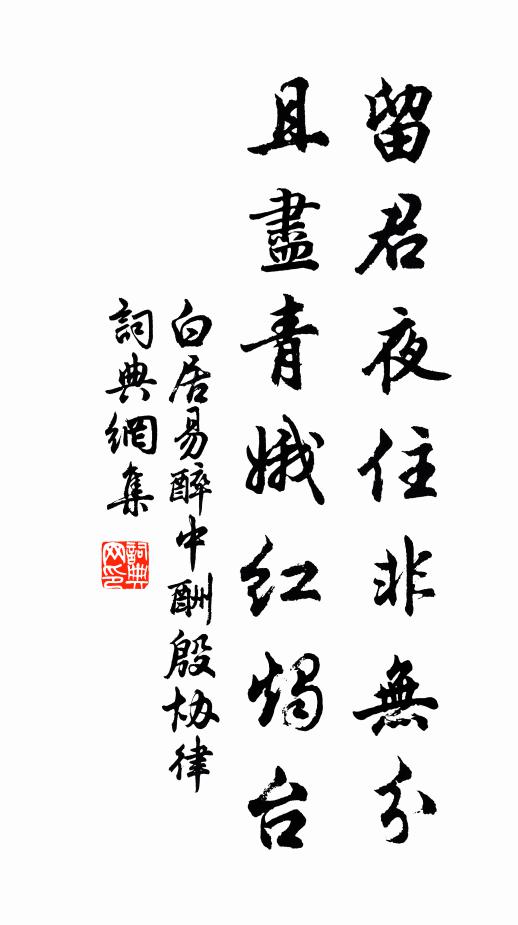 留君夜住非無分
且盡青娥红燭台
白居易醉中酬殷协律
詞典網集
詞典网印